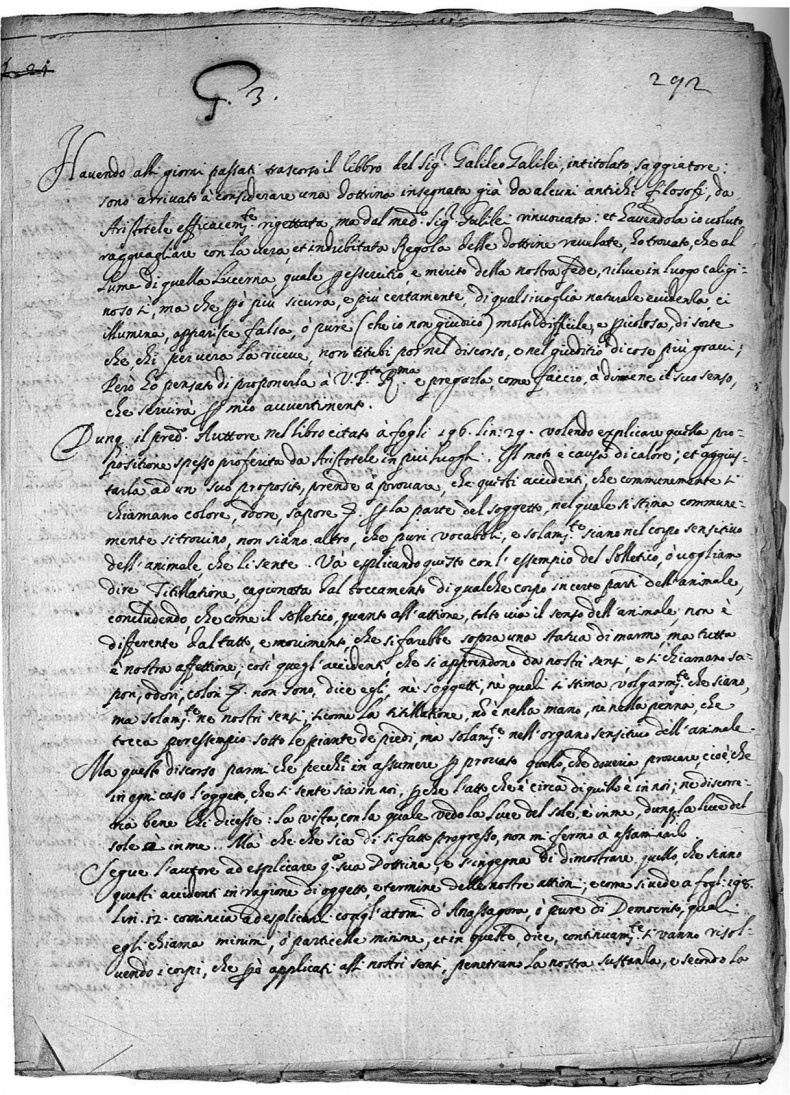 G. 3.
292
Havendo alli giorni passati trascorso il libbro del Sig.r Galileo Galilei, intitolato, saggiatore:
sono arrivato à considerare una dottrina insegnata già da alcuni antichi Filosofi, da
Aristotele efficacem.te rigettata, ma dal med.o Sig.r Galilei rinuovata: et havendola io voluto
ragguagliare con la vera, et indubitata Regola delle dottrine revelate, hò trovato, che al
lume di quella Lucerna, quale per essercitio, e merito della nostra fede, riluce in luogo caligi-
noso sì, ma che però più sicura, e più certamente, di qualsivoglia naturale evidenza, ci
illumina, apparisce falsa, ò pure (che io non giudico) molto difficile, e pericolosa, di sorte
che, chi per vera la riceve, non titubi poi nel discorso, e nel giuditio di cose più gravi;
Però hò pensato di proporla à V. P.tà R.ma e pregarla, come faccio, à dirmene il suo senso,
che servirà per mio avvertimento.
Dunq. il pred.o Auttore nel libro citato à fogli 196. lin: 29. volendo explicare quella pro-
positione spesso proferita da Aristotele in più luoghi. Il moto è causa di calore; et aggius-
tarla ad un suo proposito, prende à provare, che questi accidenti, che communemente si
chiamano colore, odore, sapore per la parte del soggetto, nel quale si stima commune-
mente si trovino, non siano altro, che puri vocaboli, e solam.te siano nel corpo sensitivo
dell'animale, che li sente. Và explicando questo con l'essempio del solletico, ò vogliam
dire Titillatione, cagionata dal toccamento di qualche corpo in certe parti dell'animale,
concludendo, che come il solletico, quanto all'attione, tolto via il senso dell'animale, non è
differente dal tatto, e movimento, che si farebbe sopra una statua di marmo, ma tutta
è nostra affettione; così quegl'accidenti che si apprendono da nostri sensi, e si chiamano sa-
pori, odori, colori non sono, dice egli, nè soggetti, nè quali si stima volgarm.te che siano,
ma solam.te ne nostri sensi; si come la titillatione, nò è nella mano, nè nella penna, che
tocca per essempio sotto le piante de piedi, ma solam.te nell'organo sensitivo dell'animale.
Ma questo discorso parmi che pecchi in assumere per provato quello, che doveria provare, cioè che
in ogni caso l'oggetto, che si sente sia in noi, perche l'atto che è circa di quello è in noi; ne discorre-
rà bene chi dicesse: la vista con la quale vedo la luce del sole, è in me, dunq. la luce del
sole è in me. Mà che che sia di sì fatto progresso, non mi fermo a essaminarlo.
Segue l'autore ad esplicare q.a sua Dottrina, e s'ingegna di dimostrare, quello che siano
questi accidenti in ragione di oggetto e termine delle nostre attioni; e come si vede a fogl: 198.
lin. 12. comincia ad esplicarli con gl'atomi d'Anassagora, ò pure di Democrito, quali
egli chiama minimi, ò particelle minime, et in queste dice, continuam.te si vanno risol-
vendo i corpi, che però applicati alli nostri sensi, penetrano la nostra sustanza, e secondo la